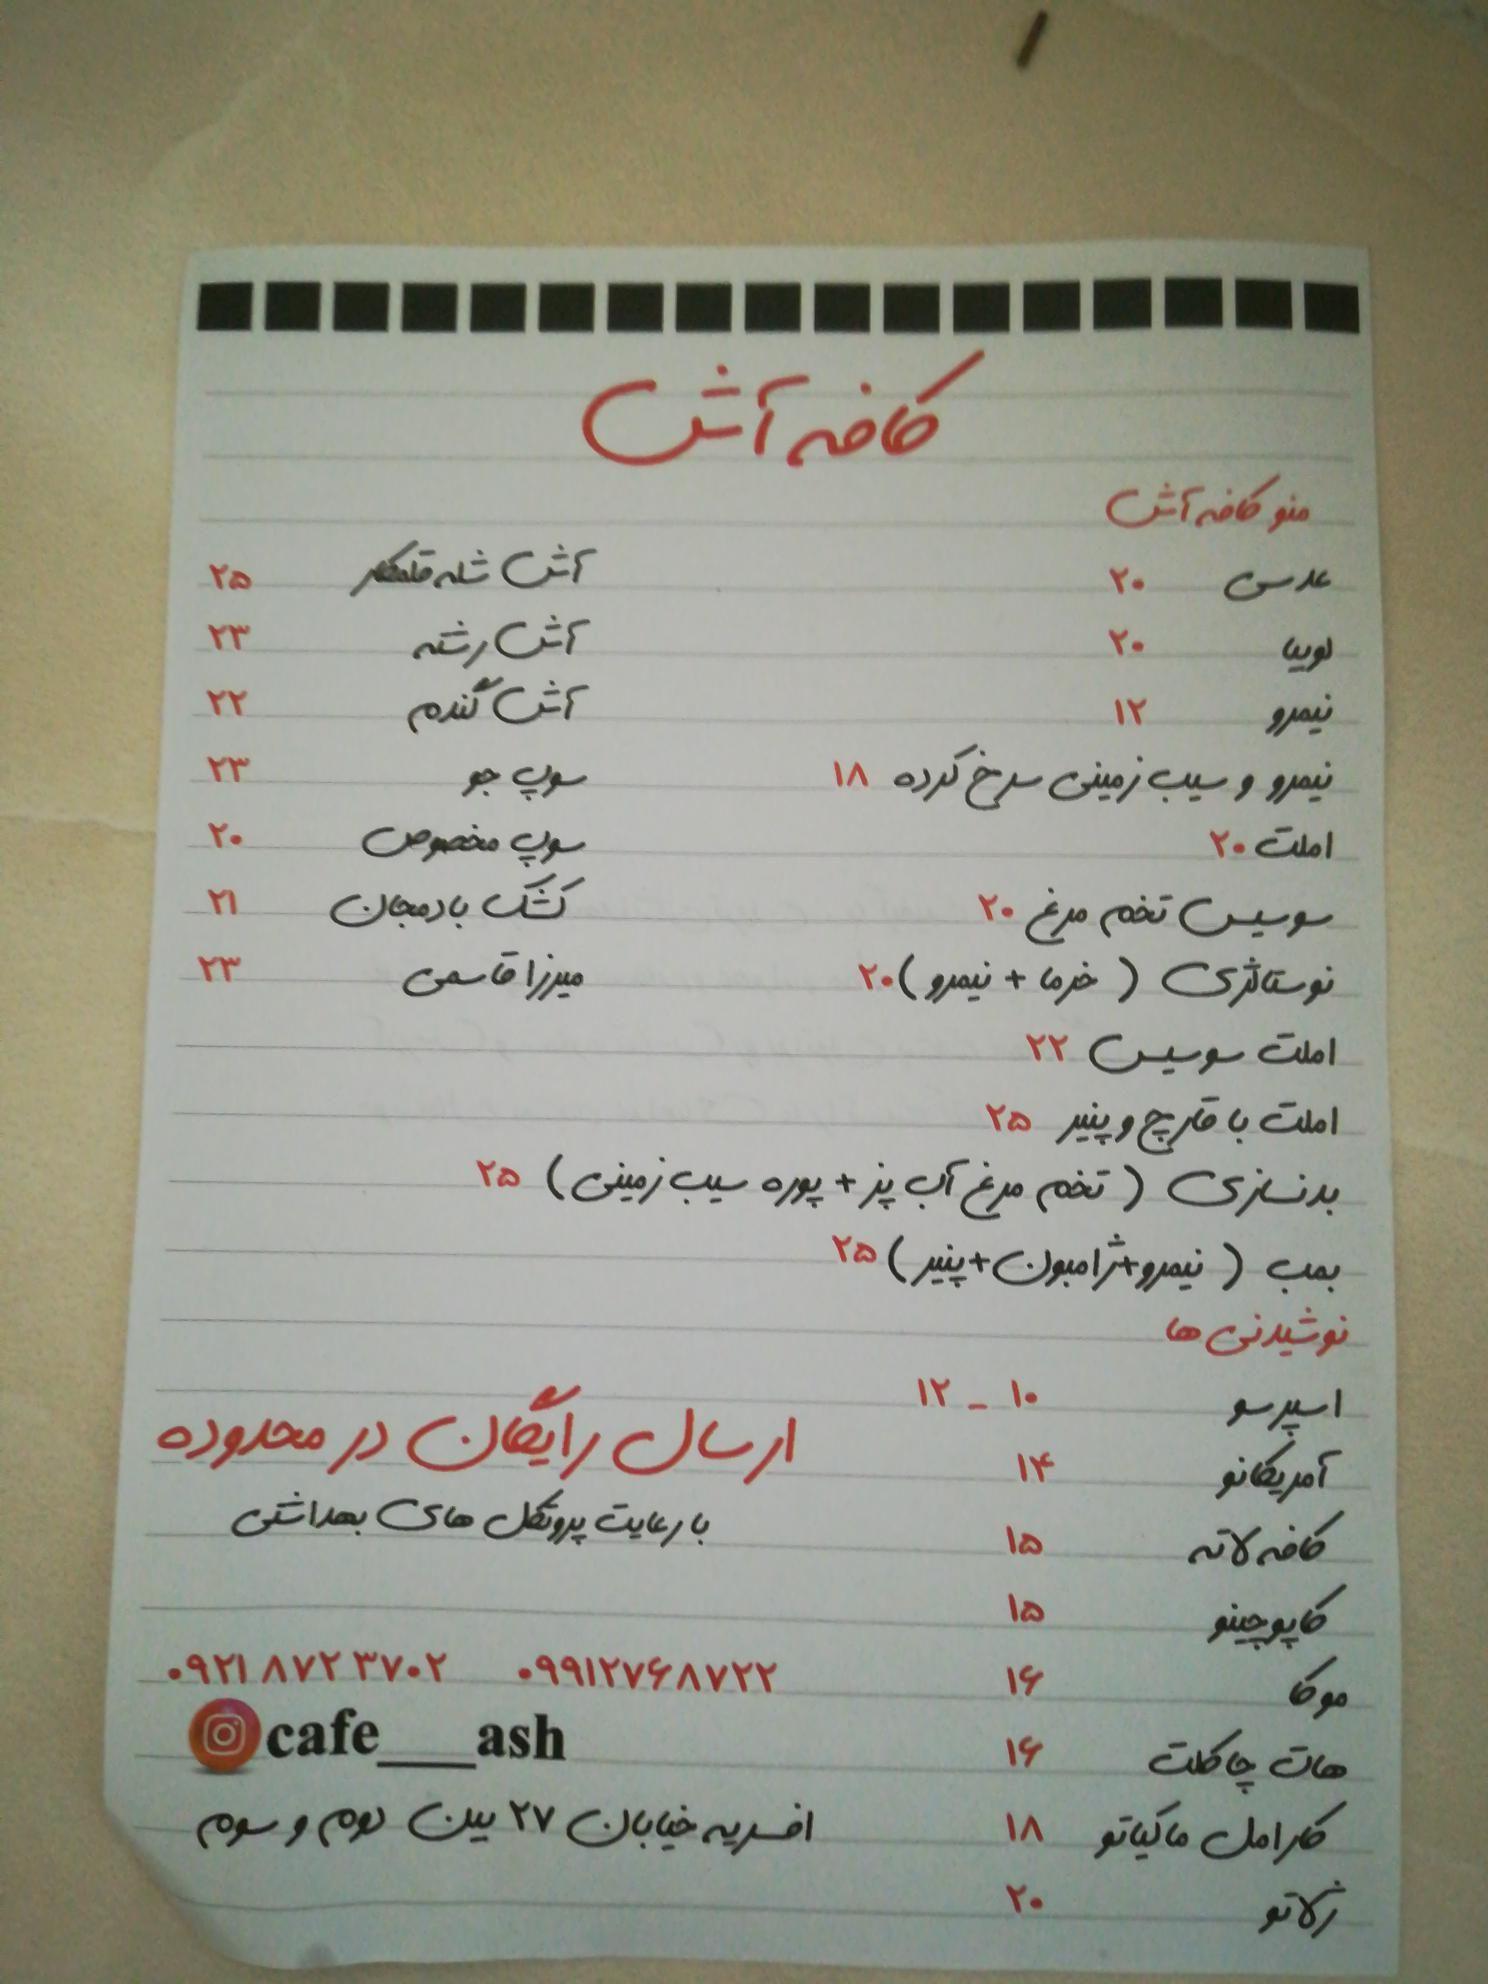 کافه آش
منو کافه آش
عدسی ۲۰
لوبیا ۲۰
نیمرو ۱۲
نیمرو و سیب زمینی سرخ کرده ۱۸
املت ۲۰
سوسیس تخم مرغ ۲۰
نوستالژی ( خرما + نیمرو ) ۲۰
املت سوسیس ۲۲
املت با قارچ و پنیر ۲۵
بدنسازی ( تخم مرغ آب پز + پوره سیب زمینی ) ۲۵
بمب ( نیمرو+ژامبون+پنیر ) ۲۵
آش شله قلمکار ۲۵
آش رشته ۲۳
آش گندم ۲۲
سوپ جو ۲۳
سوپ مخصوص ۲۰
کشک بادمجان ۲۱
میرزا قاسمی ۲۳
نوشیدنی ها
اسپرسو ۱۰ - ۱۲
آمریکانو ۱۴
کافه لاته ۱۵
کاپوچینو ۱۵
موکا ۱۶
هات چاکلت ۱۶
کارامل ماکیاتو ۱۸
ژلاتو ۲۰
ارسال رایگان در محدوده
با رعایت پروتکل های بهداشتی
۰۹۲۱۸۷۲۳۷۰۲ ۰۹۹۱۲۷۶۸۷۲۲
cafe___ash
افسریه خیابان ۲۷ بین دوم و سوم